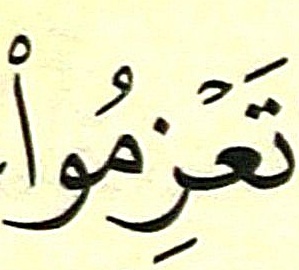 تَعْزِمُواْ